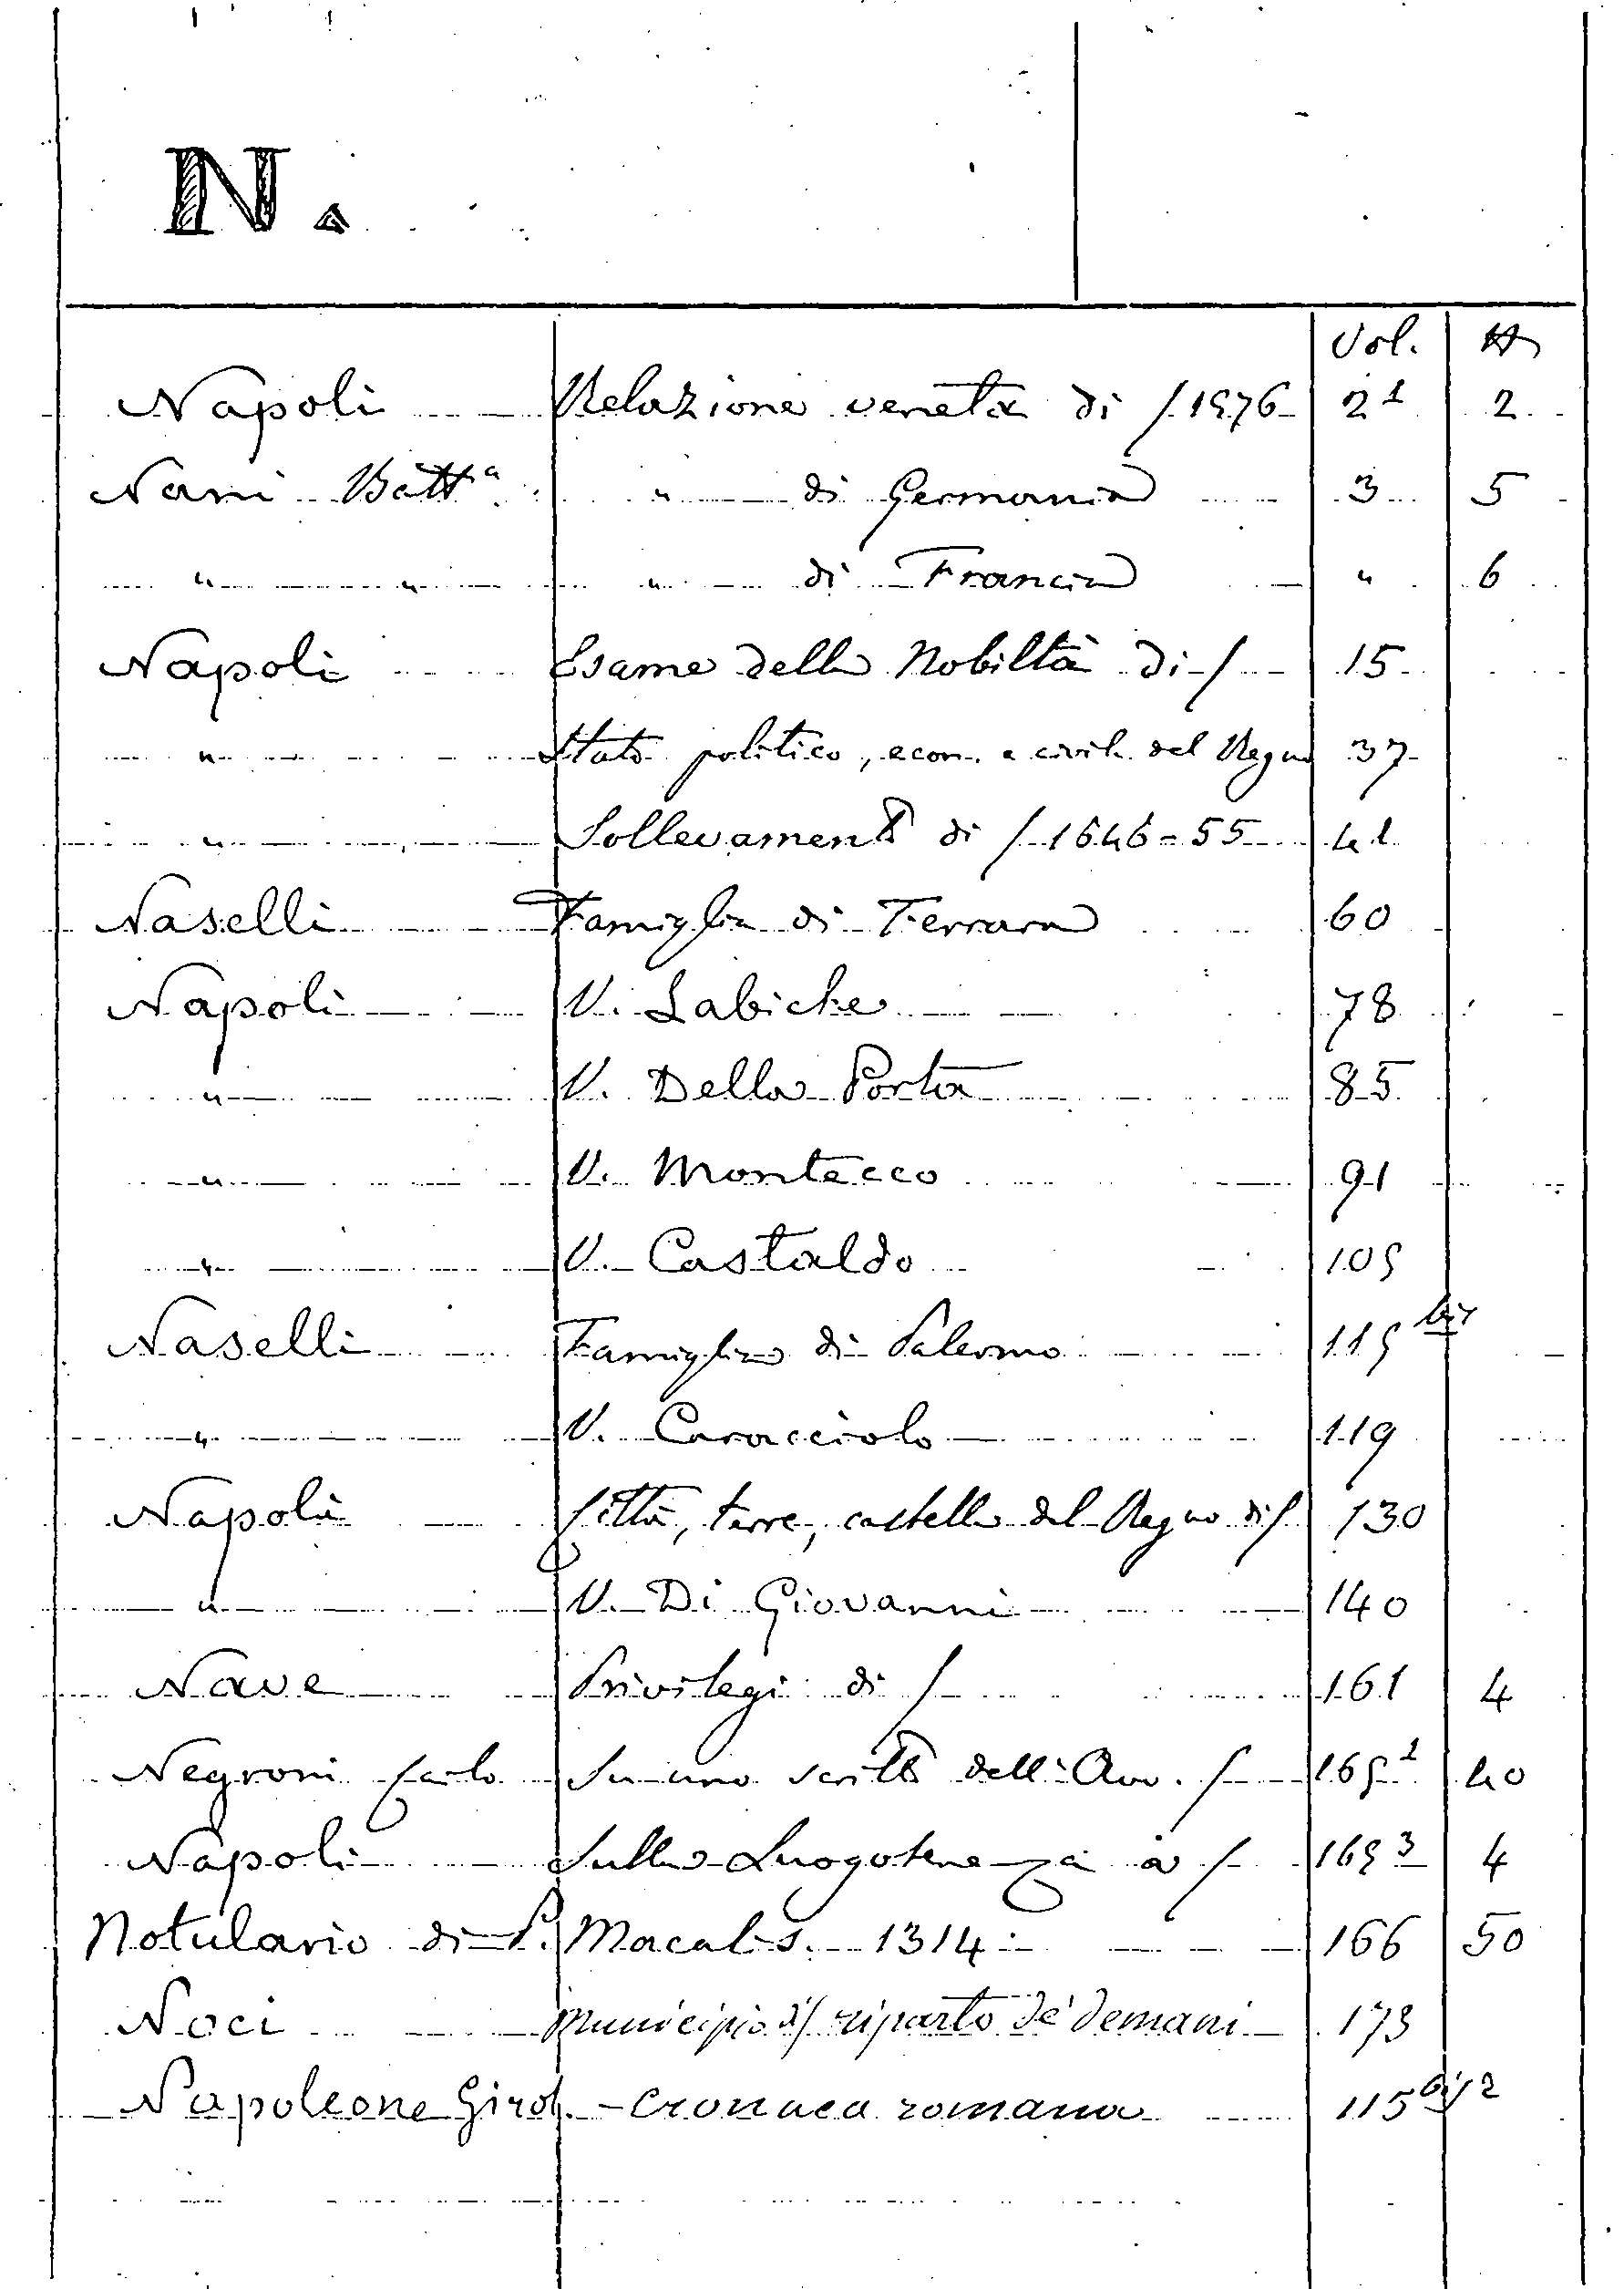 N.
Vol. N
Napoli Relazione veneta di / 1576 2¹ 2
Nani Battᵃ " di Germania 3 5
" " " di Francia " 6
Napoli Esame della Nobiltà di / 15
" Stato politico, econ. e civile del Regno 37
" Sollevamenti di / 1646=55 41
Naselli Famiglia di Ferrara 60
Napoli V. Labiche 78
" V. Della Porta 85
" V. Montecco 91
" V. Castaldo 105
Naselli Famiglia di Palermo 115 bis
" V. Caracciolo 119
Napoli Città, terre, castella del Regno di / 130
" V. Di Giovanni 140
Nave Privilegi di / 161 4
Negroni Carlo Su uno scritto dell'Avv. / 165¹ 40
Napoli Sulla Luogotenenza a / 165³ 4
Notulario di P. Macalis. 1314 166 50
Noci Municipio di / riparto de' demani 173
Napoleone Girol. - Cronaca romana 115 bis 2